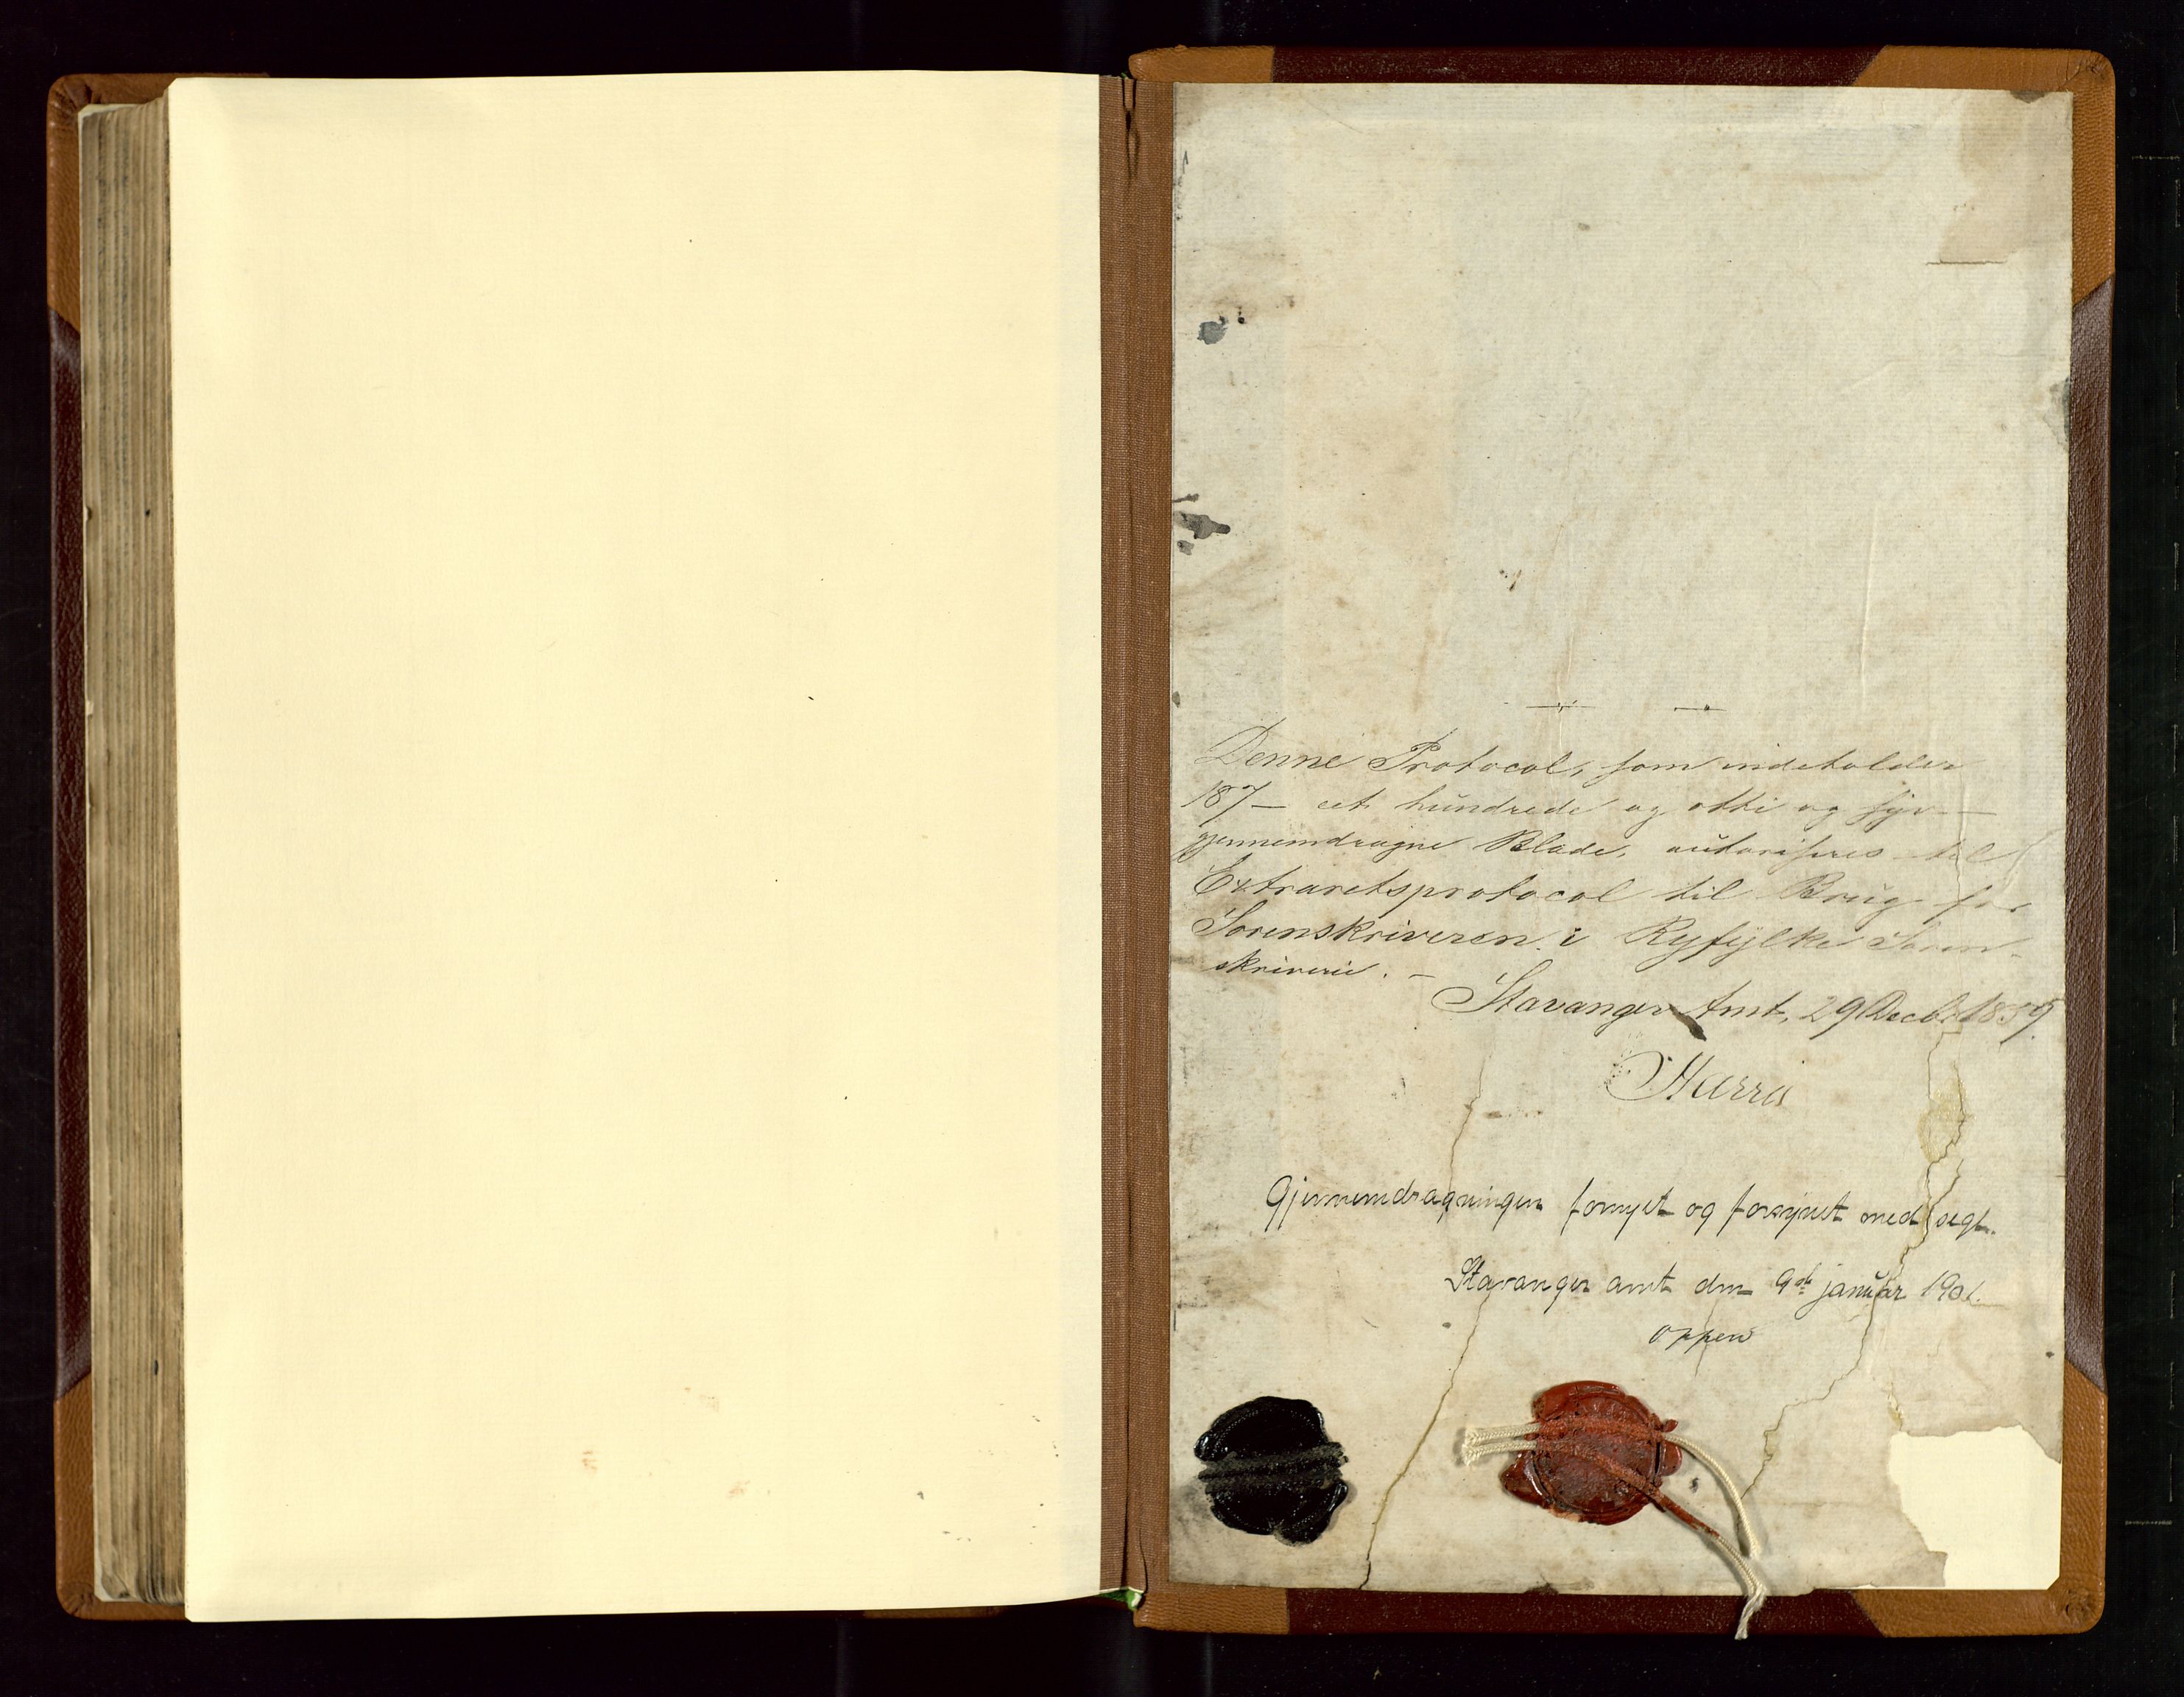 Denne Protocol, som indeholder
187 — et hundrede og otti og syv —
gjennemdragne Blade, autoriseres til
Extraretsprotocol til Brug for
Sorenskriveren i Ryfylke Soren-
skriverie. —
Stavanger Amt, 29 Decbr 1859.
Gjennemdragningen fornyet og forsynet med segl.
Stavanger amt den 9de januar 1901.
Oppen